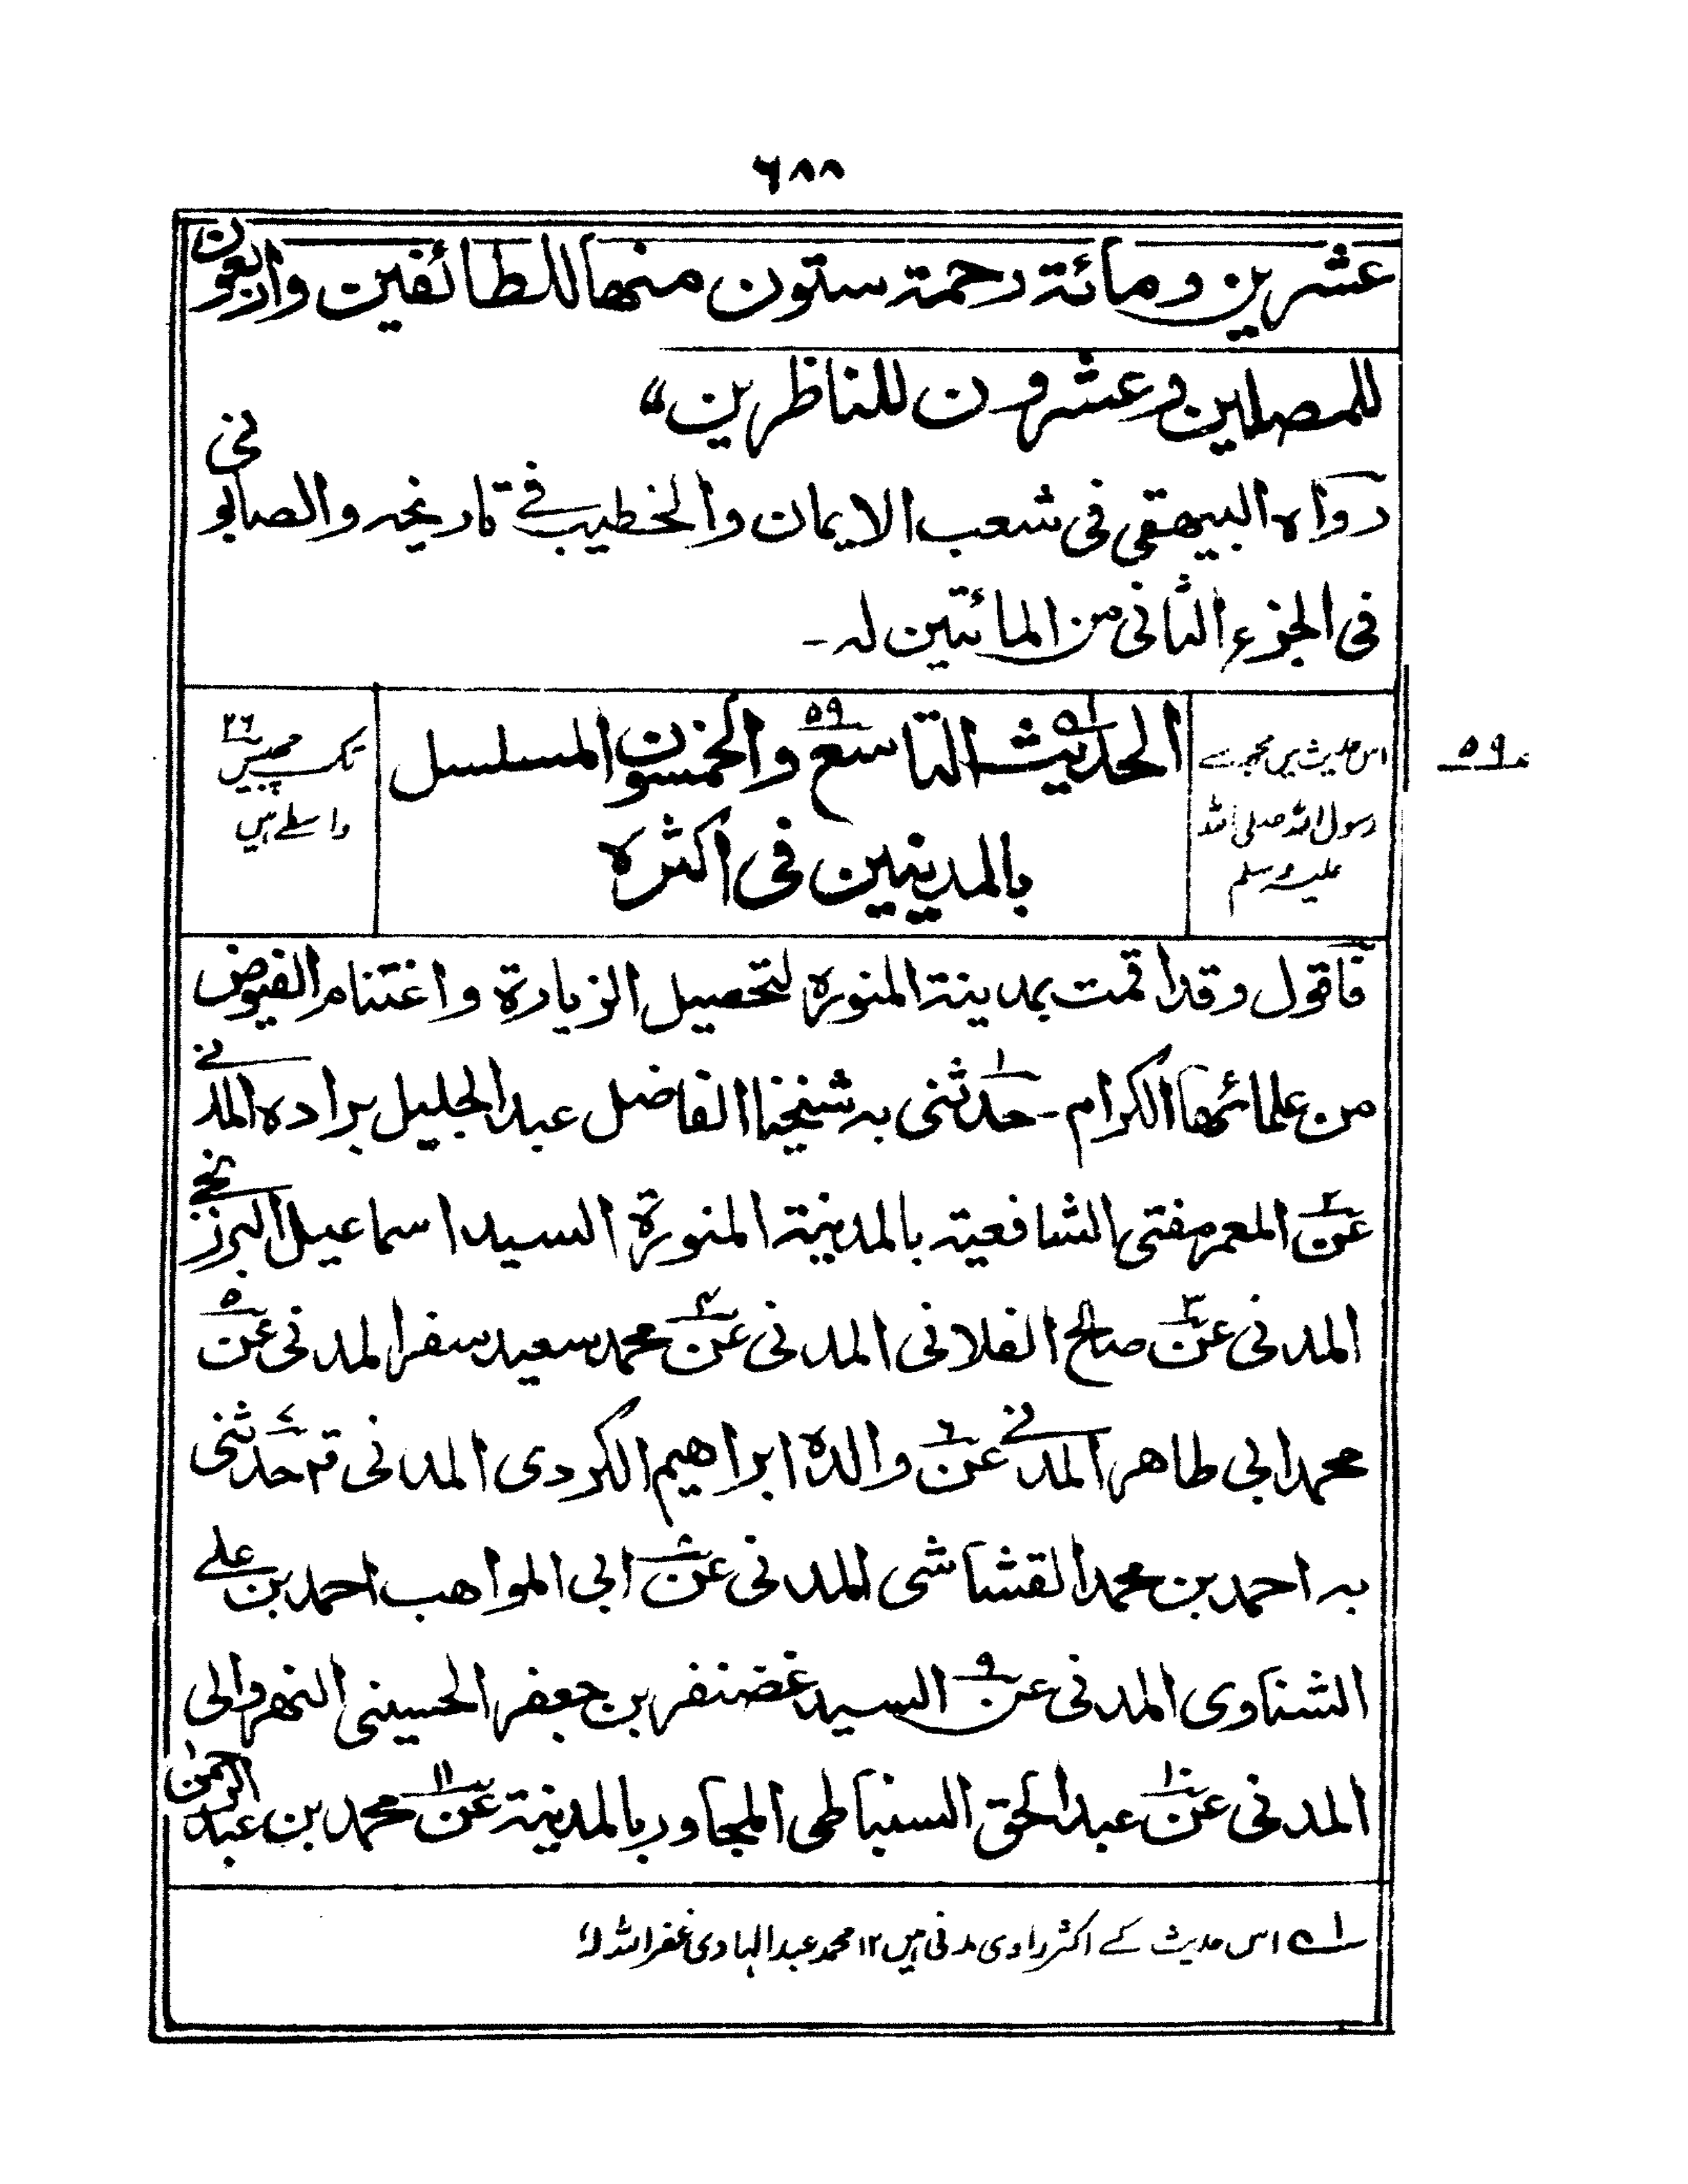 ٦٨٨
عشرين ومائة رحمة ستون منها للطائفين واربعون
للمصلين وعشرون للناظرين"
رواه البيهقي في شعب الايمان والخطيب في تاريخه والصابوني
في الجزء الثاني من المائتين له۔
٥٩
اس حدیث میں مجھ سے
رسول اللہ صلی اللہ
علیہ وسلم
الحديث التاسع والخمسون المسلسل ٥٩
بالمدينين في اكثره
تک چھبیس ٢٦
واسطے ہیں
فاقول وقد اقمت بمدينة المنوره لتحصيل الزيارة واغتنام الفيوض
من علمائها الكرام۔ حدثني ١ به شيخنا الفاضل عبد الجليل براده المدني
عن ٢ المعمر مفتي الشافعية بالمدينة المنورة السيد اسماعيل البرزنجي
المدني عن ٣ صالح الفلاني المدني عن ٤ محمد سعيد سفر المدني عن ٥
محمد ابي طاهر المدني عن ٦ والده ابراهيم الكردي المدني قم حدثني ٧
به احمد بن محمد القشاشي المدني عن ٨ ابي المواهب احمد بن علي
الشناوي المدني عن ٩ السيد غضنفر بن جعفر الحسيني النهروالي
المدني عن ١٠ عبد الحق السنباطي المجاور بالمدينة عن ١١ محمد بن عبد الرحمن
١ اس حدیث کے اکثر راوی مدنی ہیں ١٢ محمد عبد الہادی غفر اللہ لہ